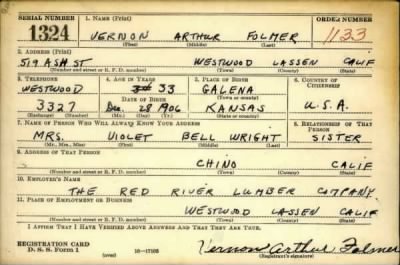 SERIAL NUMBER 1. NAME (Print) ORDER NUMBER
1324 VERNON ARTHUR FOLMER 1133
(First) (Middle) (Last)
2. ADDRESS (Print)
519 ASH ST WESTWOOD LASSEN CALIF
(Number and street or R. F. D. number) (Town) (County) (State)
3. TELEPHONE 4. AGE IN YEARS 5. PLACE OF BIRTH 6. COUNTRY OF CITIZENSHIP
WESTWOOD 33 GALENA
DATE OF BIRTH (Town or county)
3327 Dec. 28 1906 KANSAS U.S.A.
(Exchange) (Number) (Mo.) (Day) (Yr.) (State or country)
7. NAME OF PERSON WHO WILL ALWAYS KNOW YOUR ADDRESS 8. RELATIONSHIP OF THAT PERSON
MRS. VIOLET BELL WRIGHT SISTER
(Mr., Mrs., Miss) (First) (Middle) (Last)
9. ADDRESS OF THAT PERSON
CHINO CALIF
(Number and street or R. F. D. number) (Town) (County) (State)
10. EMPLOYER'S NAME
THE RED RIVER LUMBER COMPANY
11. PLACE OF EMPLOYMENT OR BUSINESS
WESTWOOD LASSEN CALIF
(Number and street or R. F. D. number) (Town) (County) (State)
I AFFIRM THAT I HAVE VERIFIED ABOVE ANSWERS AND THAT THEY ARE TRUE.
REGISTRATION CARD
D. S. S. Form 1 (over) 16—17105 Vernon Arthur Folmer
(Registrant's signature)